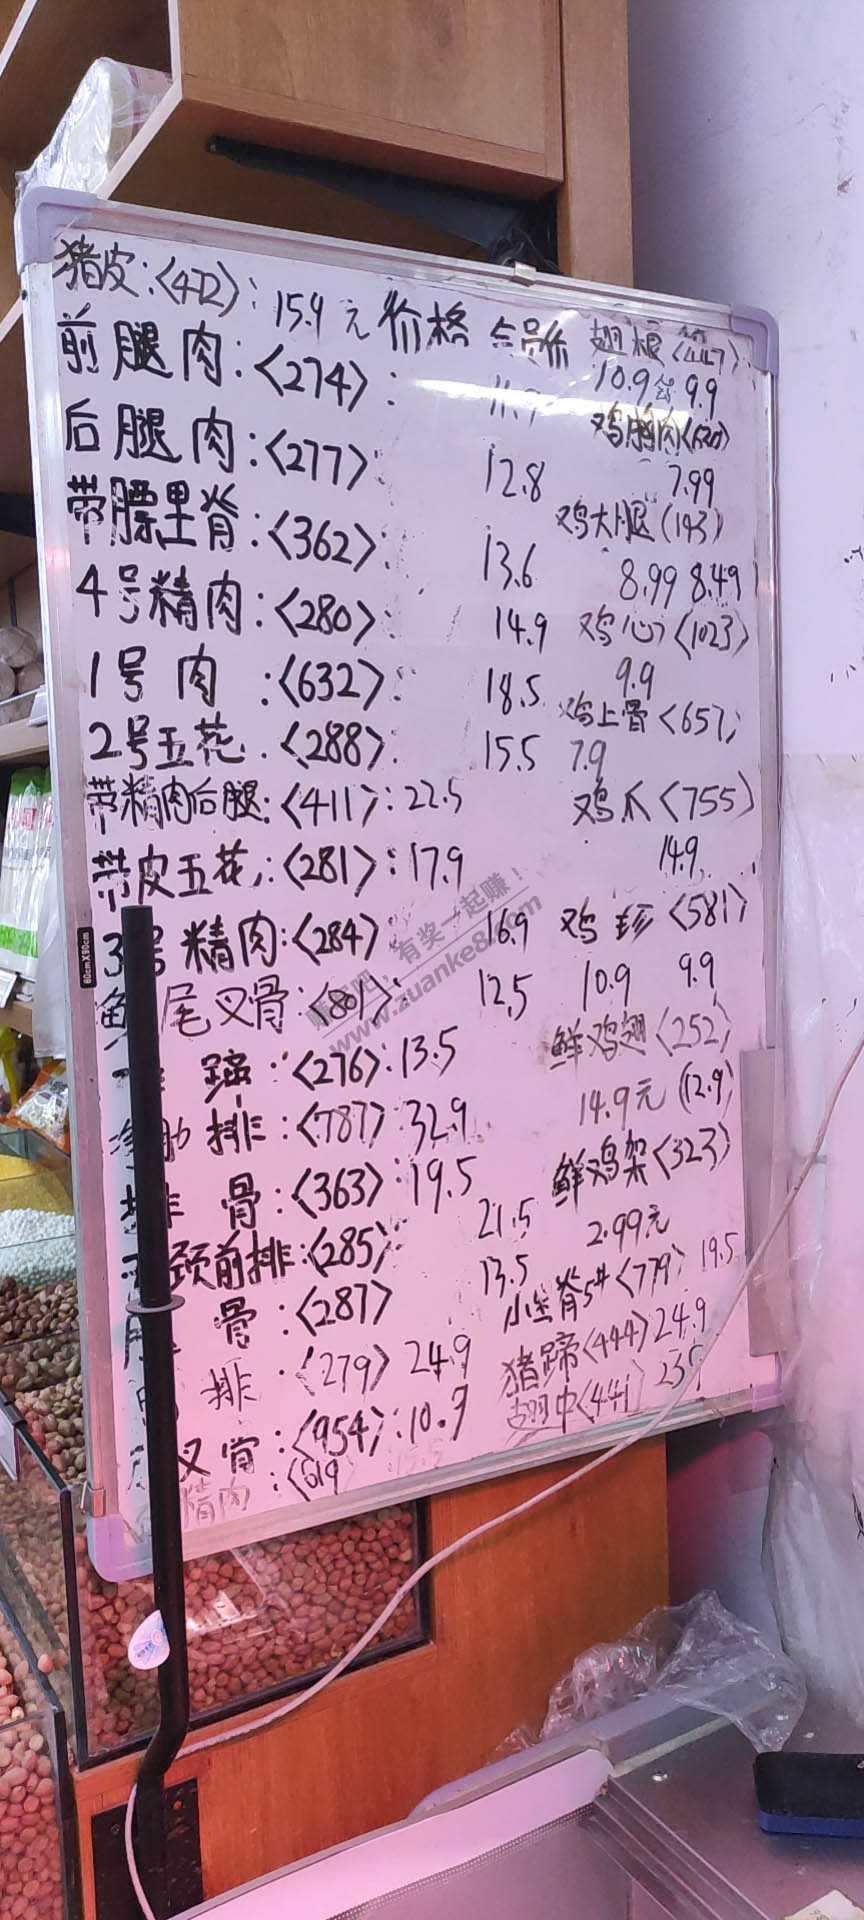 猪皮:<472>: 15.9元 价格 会员价
前腿肉:<274>:
后腿肉:<277> 12.8
带膘里脊:<362>: 13.6
4号精肉:<280>: 14.9
1号肉:<632>: 18.5
2号五花:<288>: 15.5
带精肉后腿:<411>:22.5
带皮五花:<281>:17.9
3号精肉:<284> 16.9
尾叉骨:<801>: 12.5
蹄:<276>:13.5
肋排:<787>:32.9
骨:<363>:19.5
颈前排:<285> 21.5
骨:<287> 13.5
排:<279> 24.9
叉骨:<954>:10.9
精肉:<619 15.5
翅根<447>
10.9 会 9.9
鸡胸肉
7.99
鸡大腿(193)
8.99 8.49
鸡心<1023>
9.9
鸡上骨<657>
7.9
鸡爪<755>
14.9
鸡珍<581>
10.9 9.9
鲜鸡翅<252>
14.9元(12.9)
鲜鸡架<323>
2.99元
小里脊5#<779> 19.5
猪蹄<444>24.9
翅中<441> 23.9
60cmX90cm
赚客吧，有奖一起赚！
www.zuanke8.com